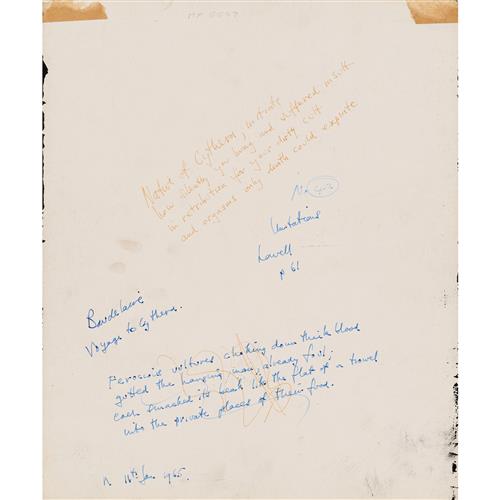 Native of Cythera, initiate
how silently you hung and suffered insult
in retribution for your dirty cult
and orgasms only death could expiate
Imitations
Lowell
p 61
Baudelaire
Voyage to Cythera.
Ferocious vultures choking down thick blood
gutted the hanging man, already foul;
each smacked its beak like the flat of a trowel
into the private places of their food.
16th Jan 1965.